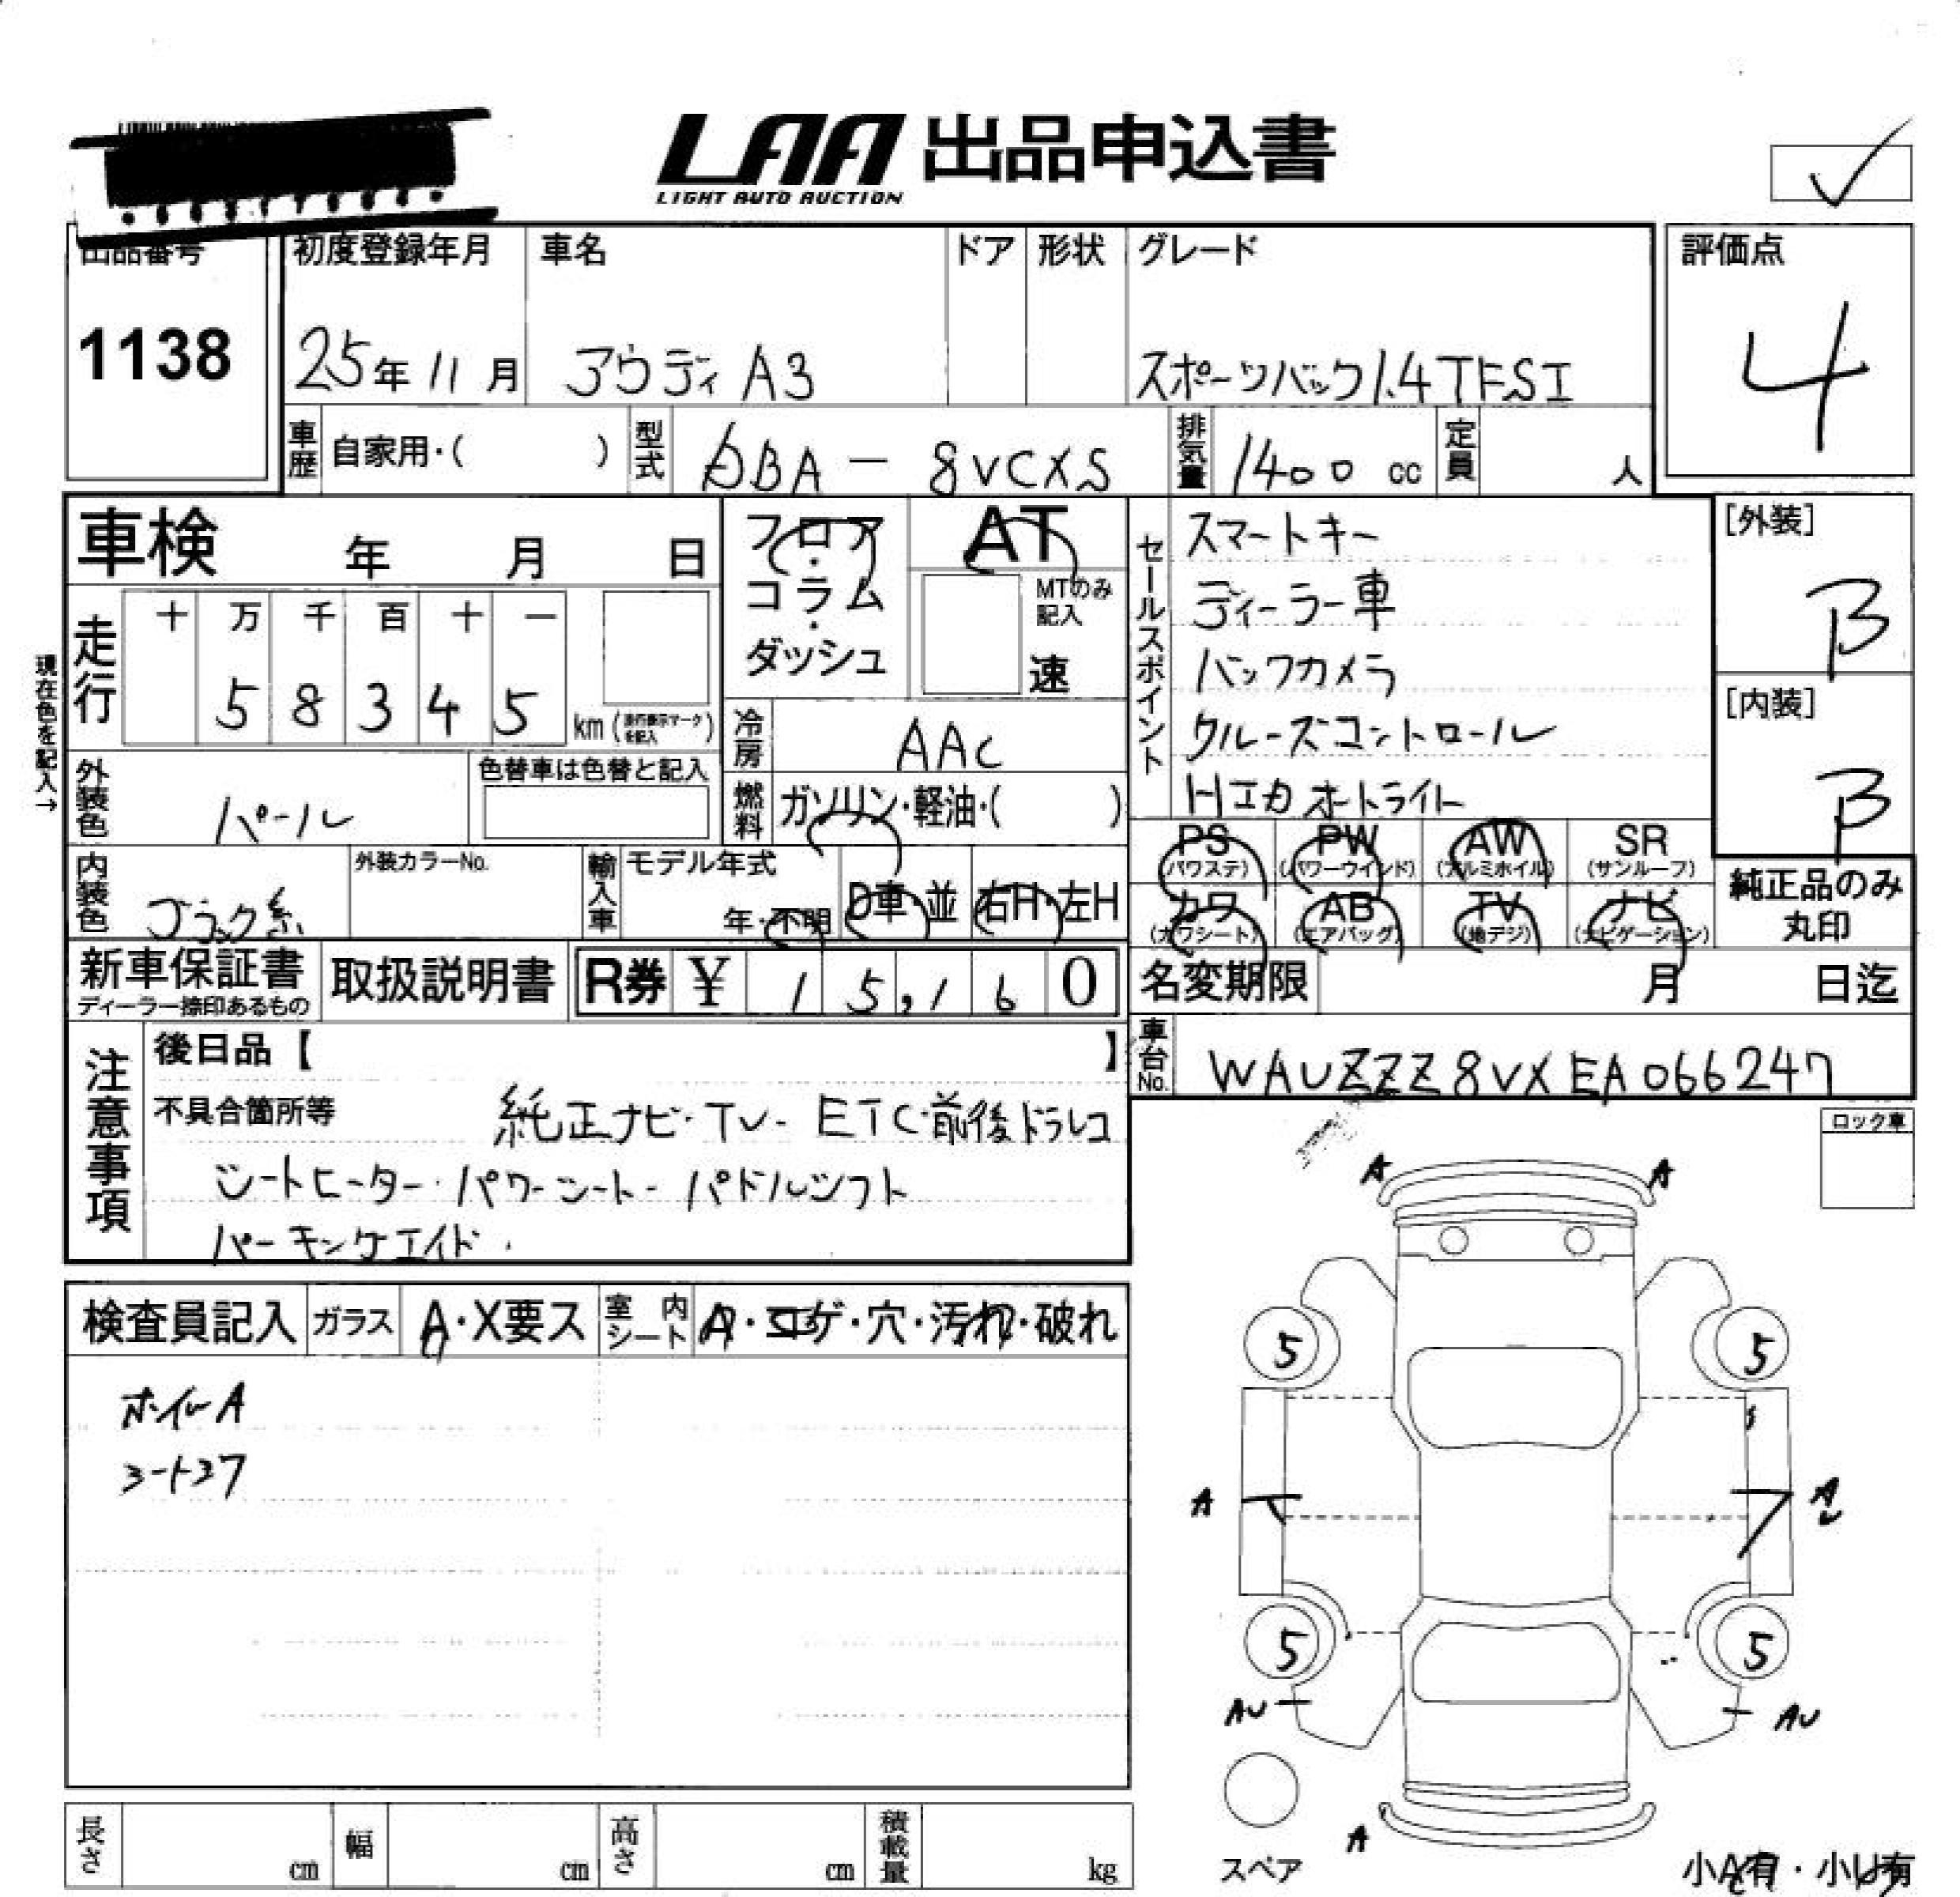 LAA 出品申込書
LIGHT AUTO AUCTION
出品番号 初度登録年月 車名 ドア 形状 グレード 評価点
1138 25年11月 アウディ A3 スポーツバック1.4TFSI 4
車歴 自家用・( ) 型式 DBA-8VCXS 排気量 1400 cc 定員 人
車検 年 月 日
フロア・コラム・ダッシュ
AT
MTのみ記入
速
セールスポイント
スマートキー
ディーラー車
バックカメラ
クルーズコントロール
HIDオートライト
[外装]
B
[内装]
B
現在色を記入→
走行 十 万 千 百 十 一
5 8 3 4 5 km (走行表示マークを記入)
冷房 AAC
外装色 パール 色替車は色替と記入
燃料 ガソリン・軽油・( )
内装色 ブラック系 外装カラーNo. 輸入車 モデル年式 年・不明 D車・並 右H・左H
PS (パワステ) PW (パワーウインド) AW (アルミホイル) SR (サンルーフ)
カワ (カワシート) AB (エアバッグ) TV (地デジ) ナビ (ナビゲーション)
純正品のみ丸印
新車保証書 ディーラー捺印あるもの 取扱説明書 R券 ¥ 15,160
名変期限 月 日迄
車台No. WAUZZZ8VXEA066247
注意事項
後日品【 】
不具合箇所等 純正ナビ・TV・ETC・前後ドラレコ
シートヒーター・パワーシート・パドルシフト
パーキングエイド
ロック車
検査員記入 ガラス A・X要ス 室内シート A・コゲ・穴・汚れ・破れ
ホイルA
A A
5 5
A A
5 5
AU AU
A
スペア
小A有・小U有
長さ cm 幅 cm 高さ cm 積載量 kg